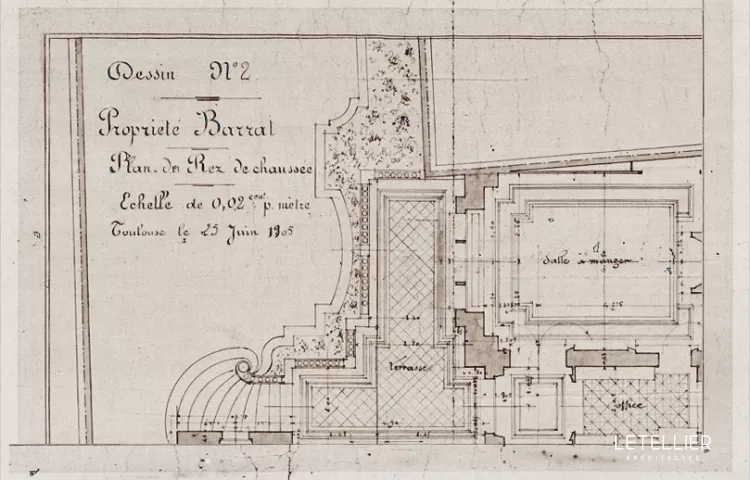 Dessin N°2
Propriété Barrat
Plan du Rez de chaussée
Echelle de 0,02 cent. p. mètre
Toulouse le 25 Juin 1905
Salle à manger
terrasse
office
LETELLIER
ARCHITECTES